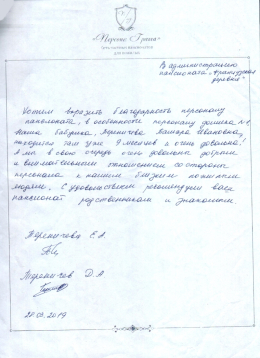 «Персона Грата»
В администрацию
пансионата „Французская
деревня"
Хотим выразить благодарность персоналу
пансионата, в особенности персоналу домика №
Наша бабушка, Тамара Ивановна,
находится там уже 9 месяцев и очень довольна!
А мы в свою очередь очень довольны добрым
и внимательным отношением со стороны
персонала к нашим близким пожилым
людям. С удовольствием рекомендуем ваш
пансионат родственникам и знакомым
Е.А.
Д.А
2019